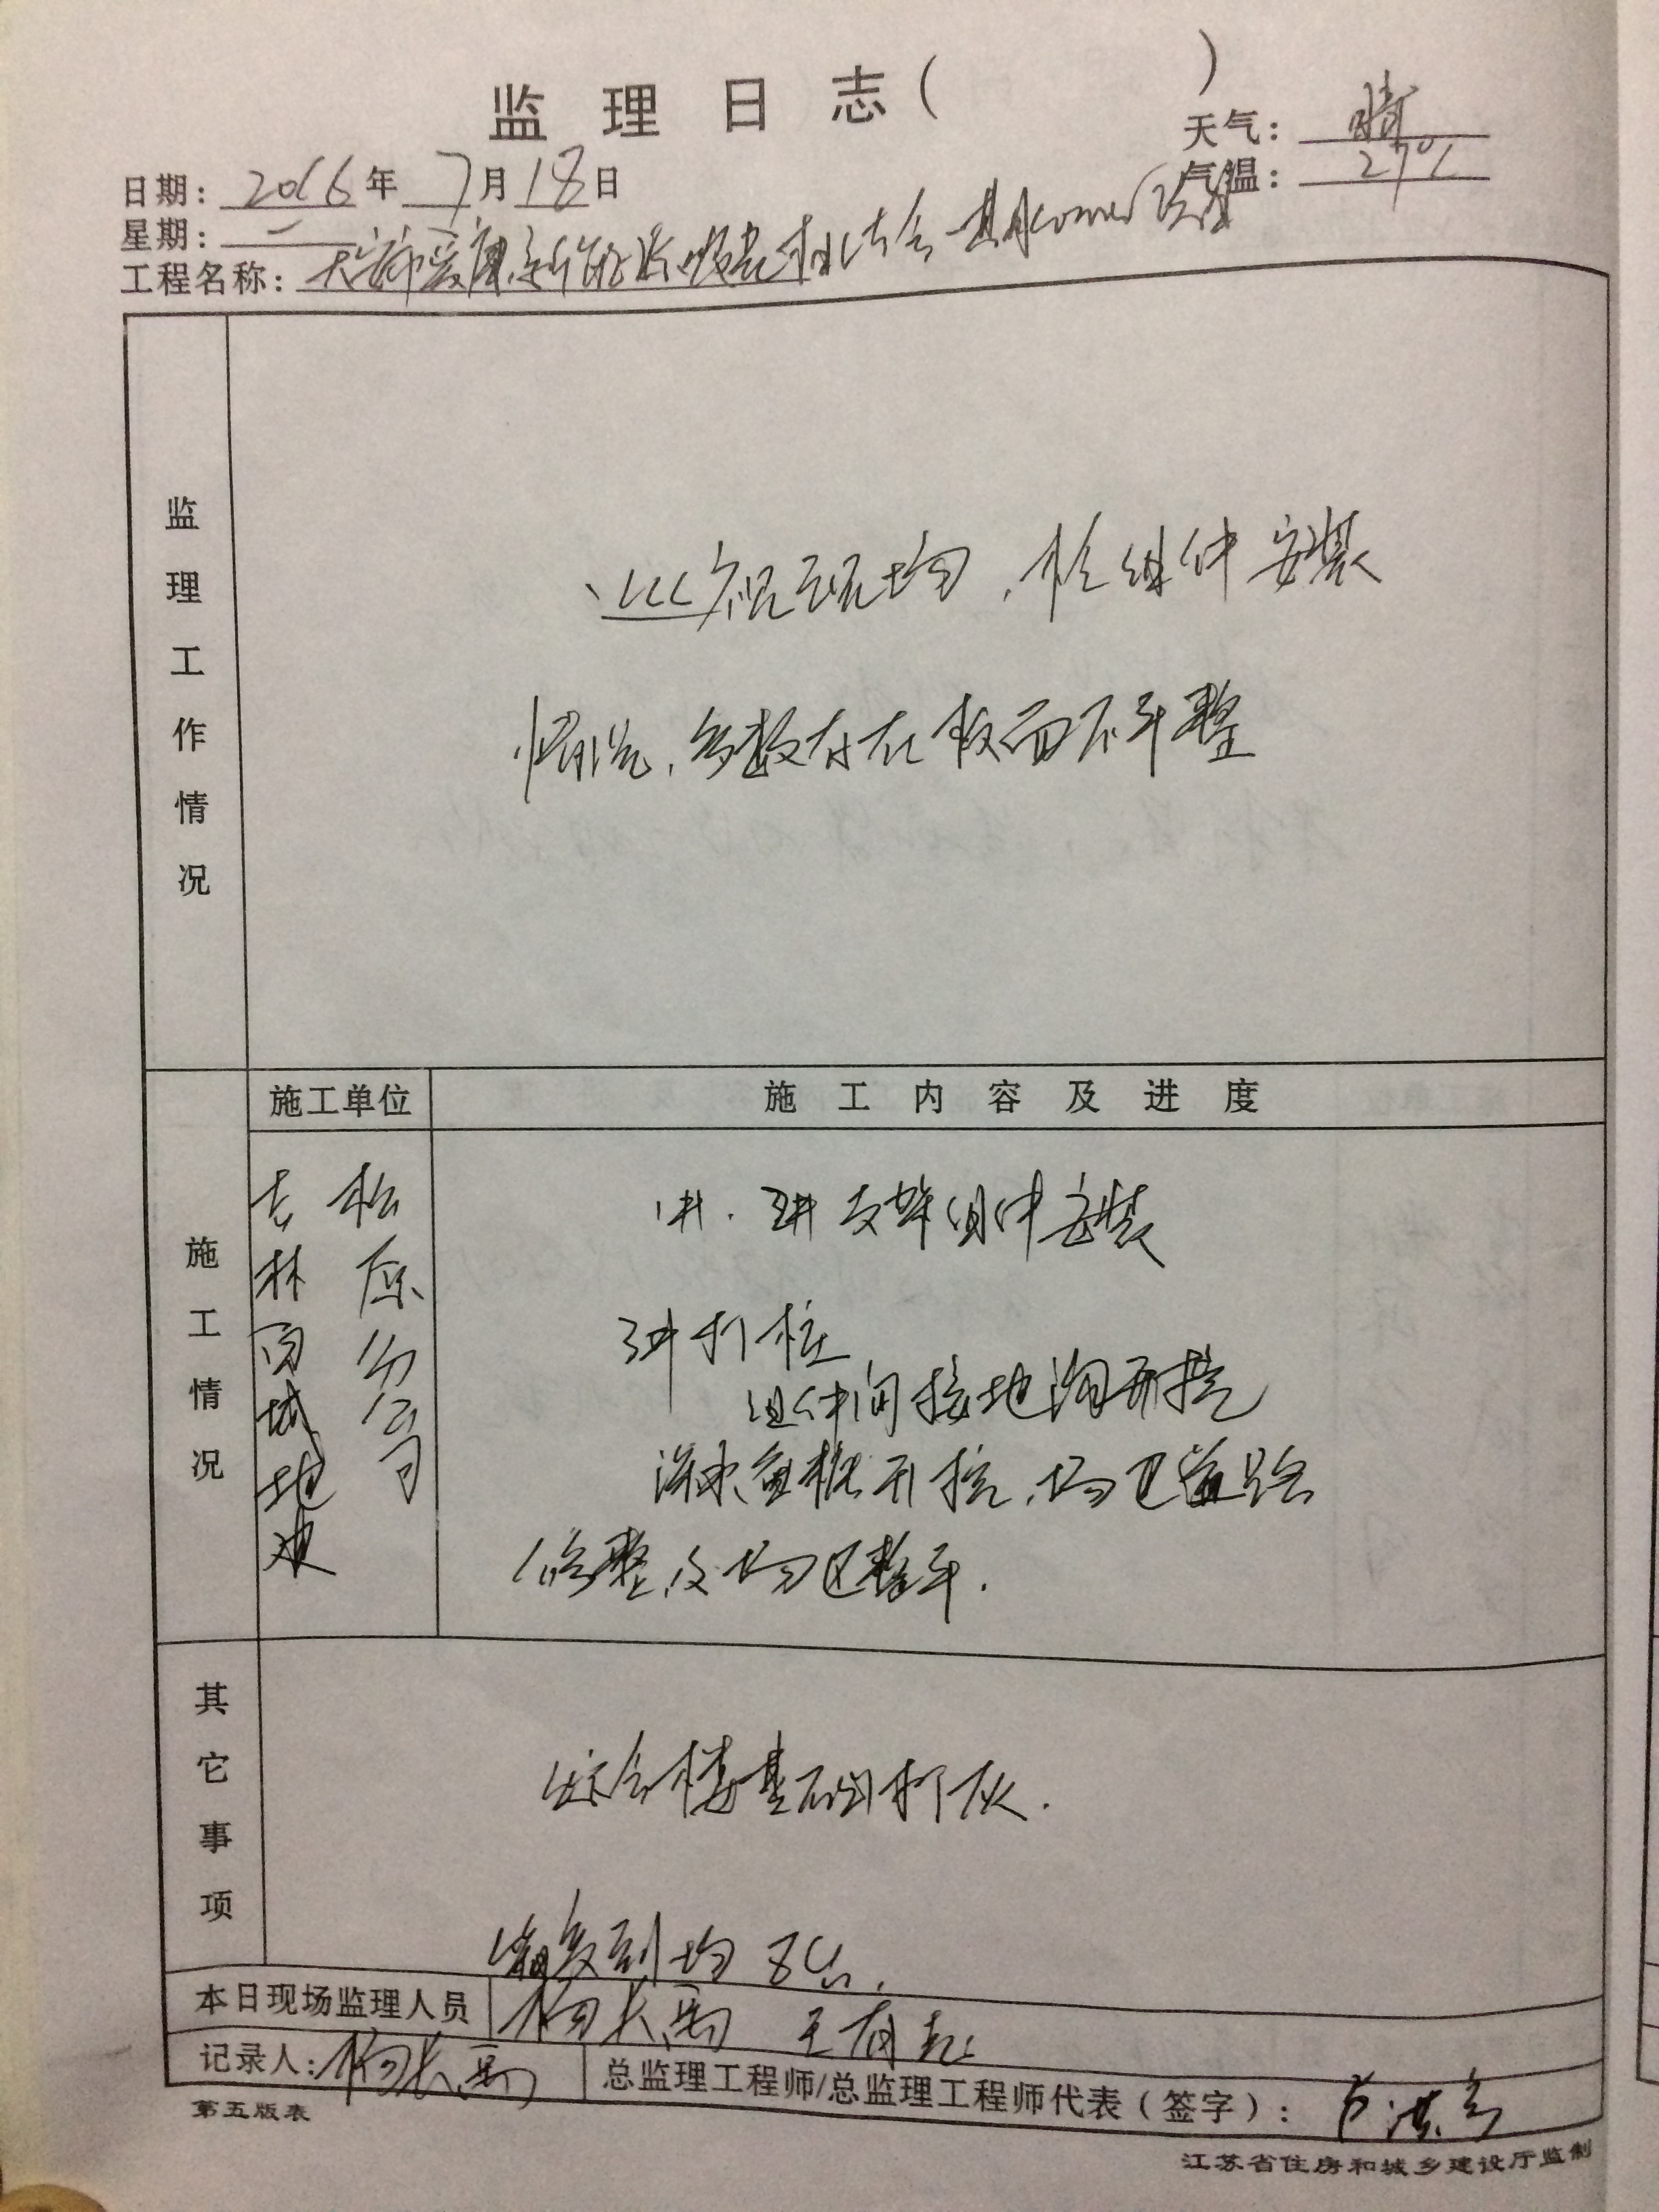 监理日志（ ）
天气：晴
日期：2016年7月18日
气温：27℃
星期：一
工程名称：大安市爱康新能源
监理工作情况
巡视现场，检组件安装
情况，多数存在板面不平整
施工情况
施工单位
施工内容及进度
吉林白城地建
松原分公司
1#.2#支架组件安装
3#打桩
组件间接地沟开挖
深水鱼塘开挖，场区道路
修整及场区整平.
其它事项
综合楼基础打灰.
箱变到场8台.
本日现场监理人员
杨长禹 王有
记录人：杨长禹
总监理工程师/总监理工程师代表（签字）：
第五版表
江苏省住房和城乡建设厅监制